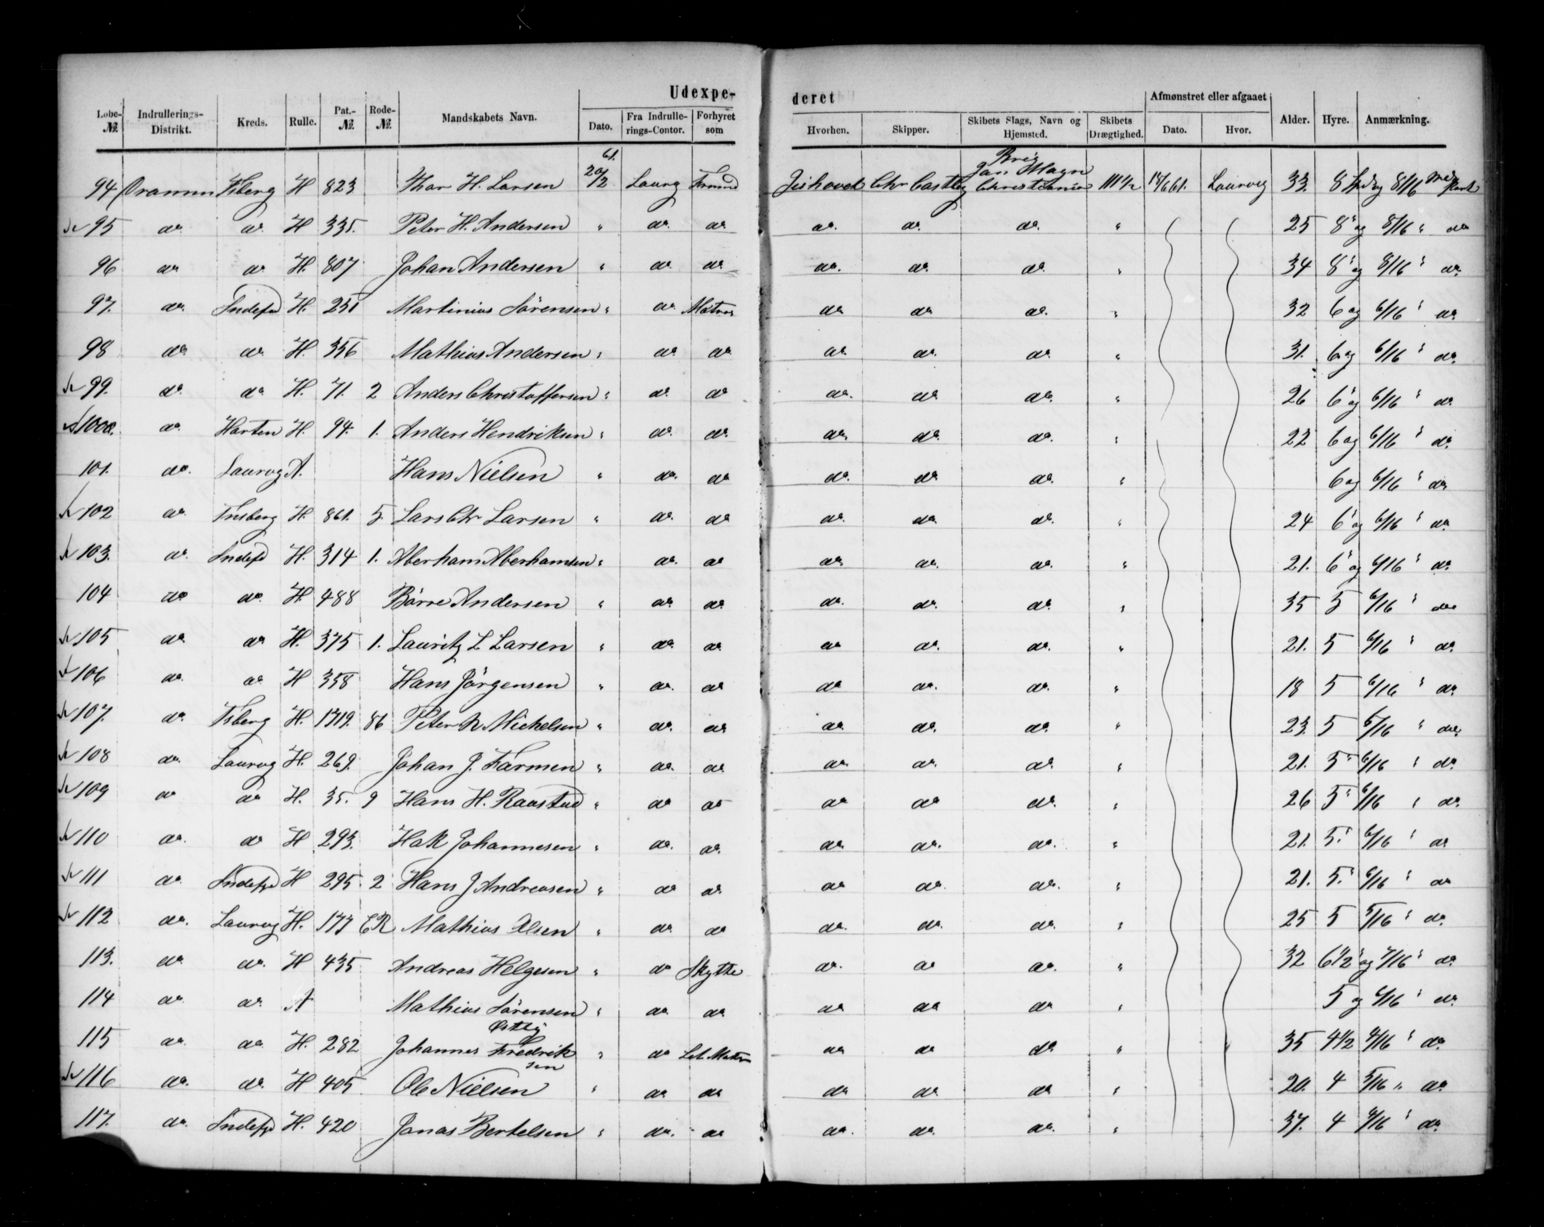 Udexpe- deret
Løbe-№ Indrullerings-Distrikt. Kreds. Rulle. Pat.-№ Rode-№ Mandskabets Navn. Dato. Fra Indrullerings-Contor. Forhyret som Hvorhen. Skipper. Skibets Slags, Navn og Hjemsted. Skibets Drægtighed. Afmønstret eller afgaaet Dato. Hvor. Alder. Hyre. Anmærkning.
94 Drammen Tsberg H 823 Thor H. Larsen 20/2 61. Laurg Tømmd Chr Castb Brig Christiania 111½ 61. Laurvig 33. 8 og 8/16
95 do do H 335. Peter H. Andersen " do do do. do. do. " 25 8 og 8/16 " do
96 do do H. 807 Johan Andersen " do do do. do. do. " 34 8 og 8/16 " do.
97. do. Sndefd H. 251 Martinius Sørensen " do Matros do do do. " 32 6 og 6/16 " do
98 do do. H. 356 Mathias Andersen " do do do do. do " 31. 6 og 6/16 " do.
99. do do H. 71. 2 Anders Christoffersen " do. do do. do do. " 26 6 og 6/16 " do
1000. do. Horten H. 94. 1. Anders Hendriksen " do. do. do. do. do. " 22 6 og 6/16 " do.
101. do. Laurvg A. Hans Nielsen " do. do do. do do. " 6 og 6/16 " do
102 do Tnsberg H. 861. 5 Lars Chr Larsen " do. do do. do. do. " 24 6 og 6/16 " do.
103. do. Sndefd H. 314 1. Aberham Aberhamsen " do. do do. do. do. " 21. 6 og 6/16 " do
104 do do. H. 488 Børre Andersen " do do do. do. do. " 35 5 6/16 " do
105 do. do H. 375 1. Lauritz L Larsen " do. do do do. do. " 21. 5 6/16 " do.
106 do. do H 358 Hans Jørgensen " do. do. do do. do. " 18 5 6/16 " do.
107. do. Tsberg H. 1719. 86 Peter N. Mickelsen " do. do do do. do. " 23. 5 6/16 " do
108 do. Laurvg H. 269. Johan J. Farmen " do. do do do. do. " 21. 5 6/16 " do.
109 do do H. 35. 9 Hans H. Raastad " do do do do do. " 26 5 6/16 " do.
110 do. do H 293. Hak Johannesen " do. do. do do. do. " 21. 5. 6/16 " do
111 do. Sndefjd H 295. 2 Hans J Andreasen " do do. do do. do. " 21. 5. 6/16 " do
112 do. Laurvg H. 177 ER Mathias Olsen " do. do do. do. do. " 25 5 5/16 " do.
113. do do. H 435. Andreas Helgesen " do Skytte do. do do. " 32 6½ og 7/16 " do
114 do do. A Mathias Sørensen Østby " do. do do do do " 5 og 6/16 " do.
115 do. do. H. 282 Johannes Fredriksen " do Let. Matros do do do. " 35 4½ 4/16 " do.
116 do. do H 405. Ole Nielsen " do do do do. do " 20. 4 5/16 " do
117. do. Sndefjd H. 420 Jonas Bertelsen " do. do do. do. do. " 37. 4 4/16 " do.